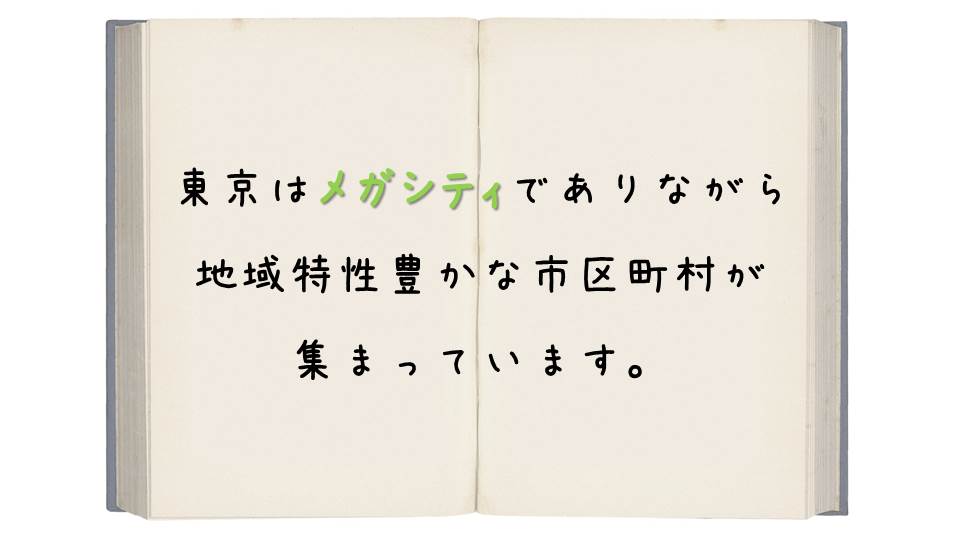 東京はメガシティでありながら
地域特性豊かな市区町村が
集まっています。